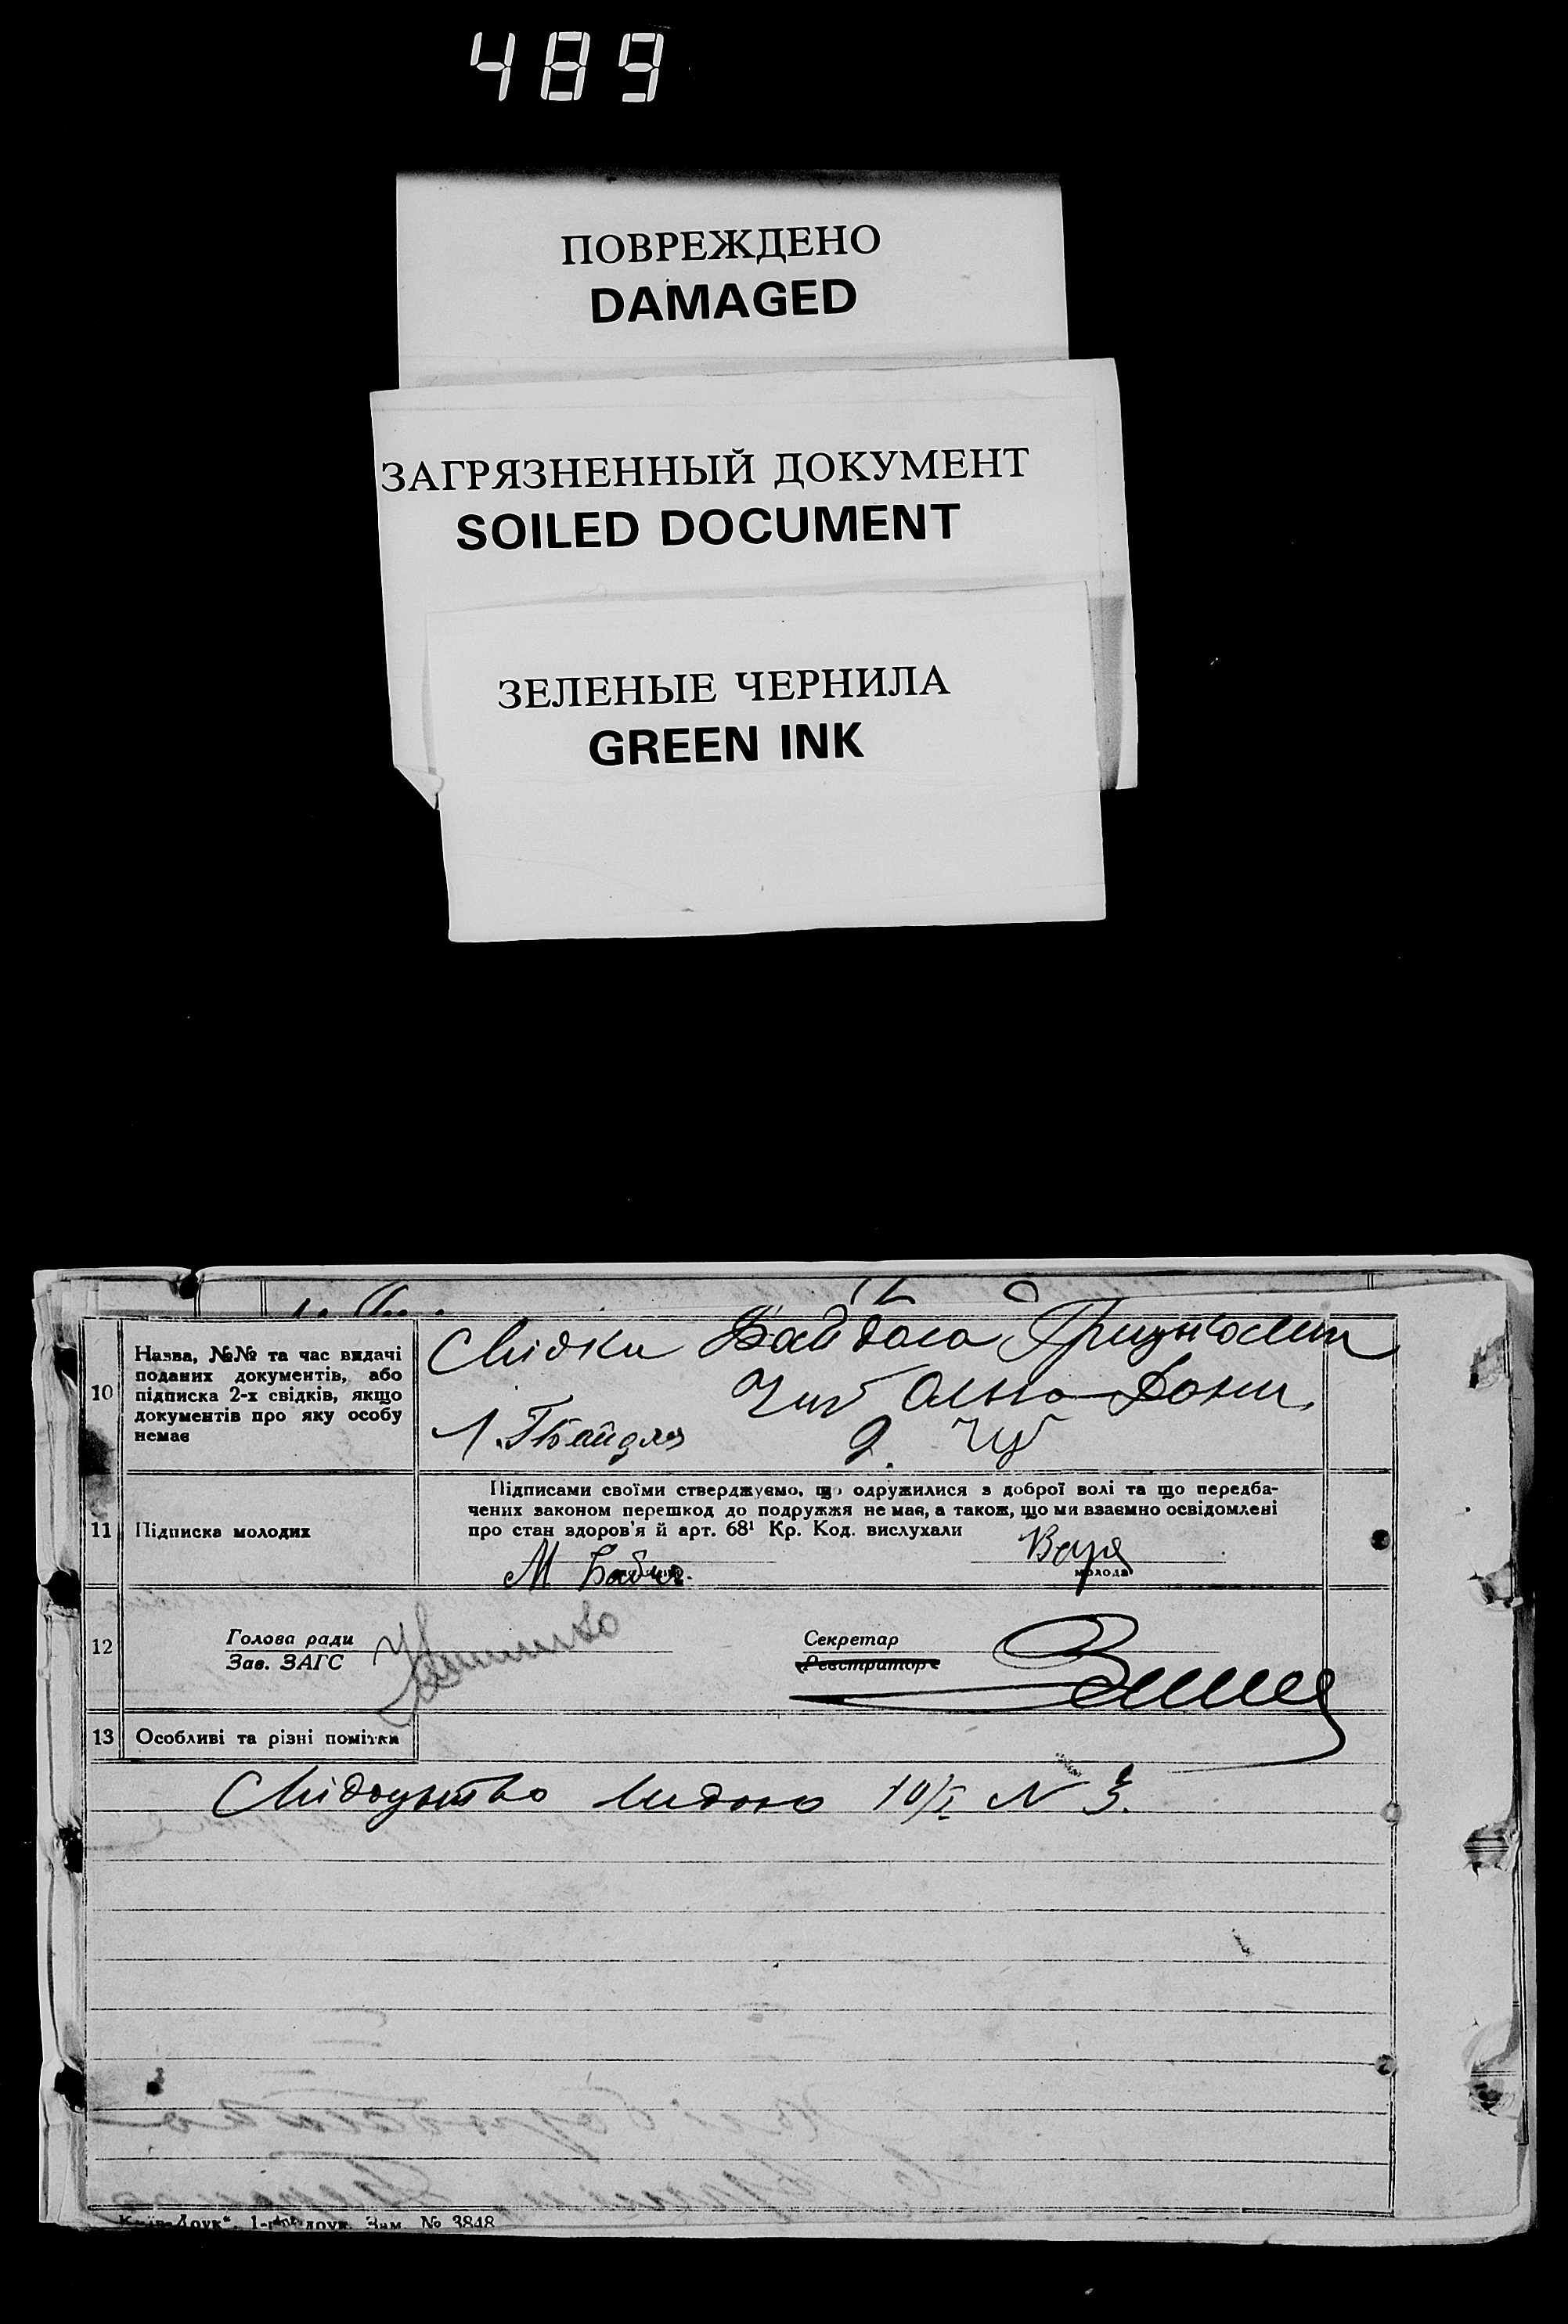 489
ПОВРЕЖДЕНО
DAMAGED
ЗАГРЯЗНЕННЫЙ ДОКУМЕНТ
SOILED DOCUMENT
ЗЕЛЕНЫЕ ЧЕРНИЛА
GREEN INK
10
Назва, №№ та час видачі
поданих документів, або
підписка 2-х свідків, якщо
документів про яку особу
немає
Свідки
Чуб
1.
2. Чуб
11
Підписка молодих
Підписами своїми стверджуємо, що одружилися з доброї волі та що передба-
чених законом перешкод до подружжя немає, а також, що ми взаємно освідомлені
про стан здоров'я й арт. 68¹ Кр. Код. вислухали
М
молода
12
Голова ради
Зав. ЗАГС
Секретар
Реєстратор
13
Особливі та різні помітки
Свідоцтво видано 10/I N 3.
1-ша друк. Зам. № 3848